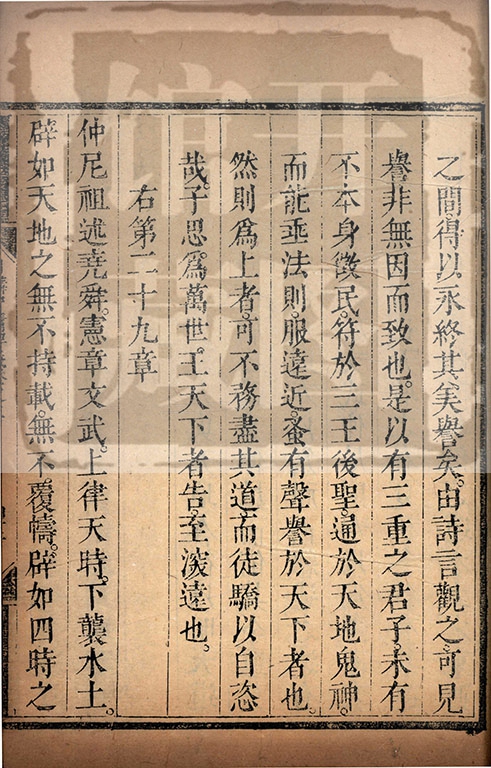 之間得以永終其美譽矣由詩言觀之可見
譽非無因而致也是以有三重之君子未有
不本身徵民符於三王後聖通於天地鬼神
而能垂法則服遠近蚤有聲譽於天下者也
然則爲上者可不務盡其道而徒驕以自恣
哉子思爲萬世王天下者告至深遠也
右第二十九章
仲尼祖述堯舜憲章文武上律天時下襲水土
辟如天地之無不持載無不覆幬辟如四時之